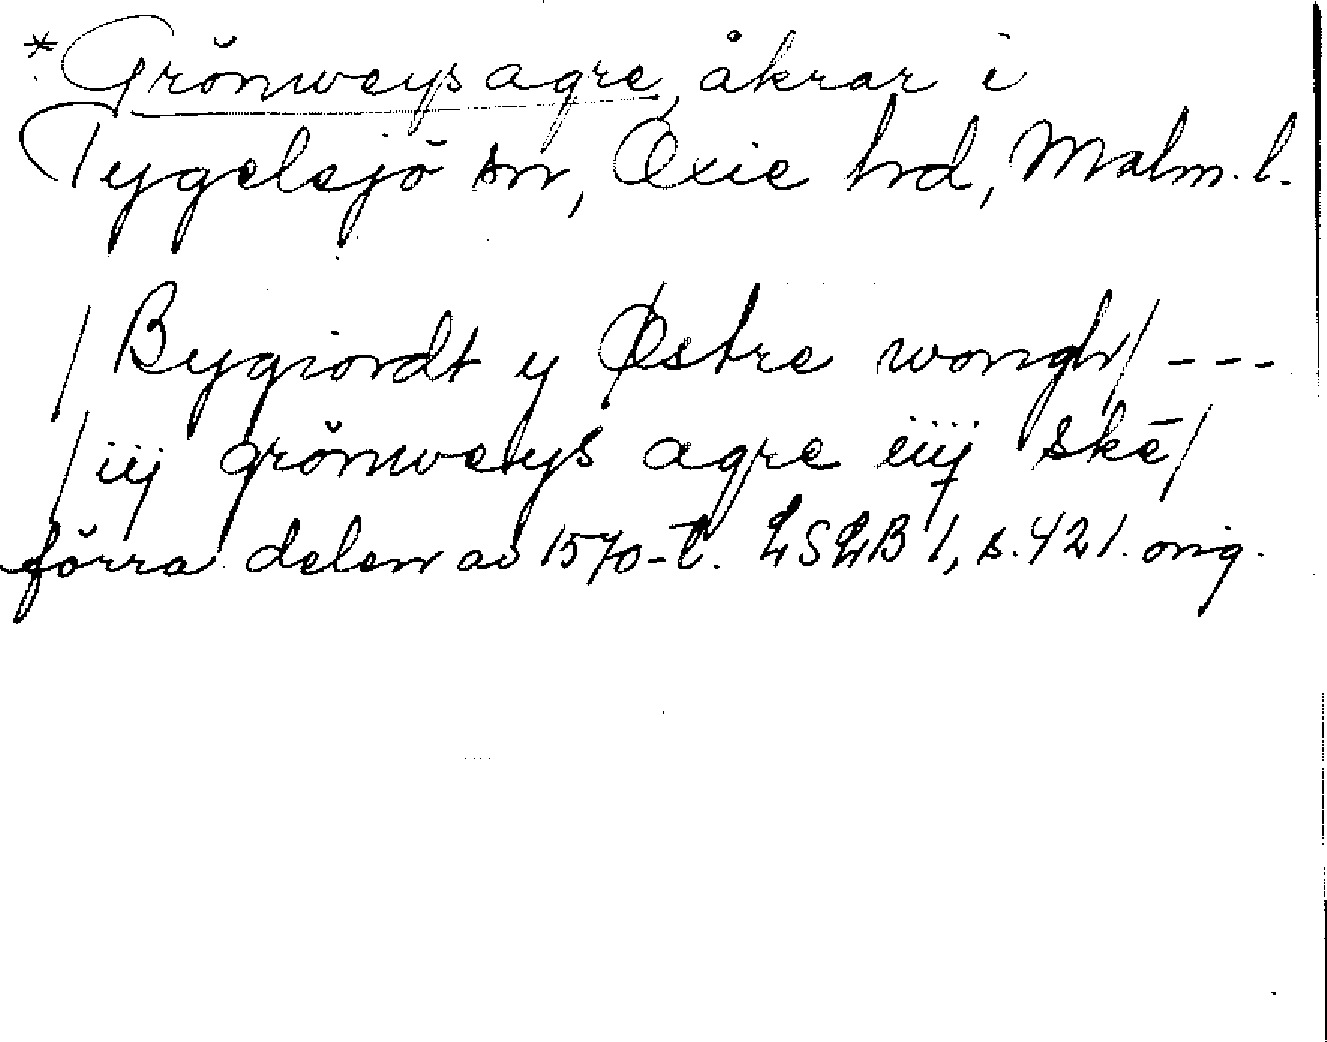 *Grŏnweys agre, åkrar i
Tygelsjö sn, Oxie hd, Malm. l.
/Bygiordt y Østre wongh/ ---
/iij grŏnweys agre iiij skē/
förra delen av 1570-t. LSLB 1, s. 421. orig.